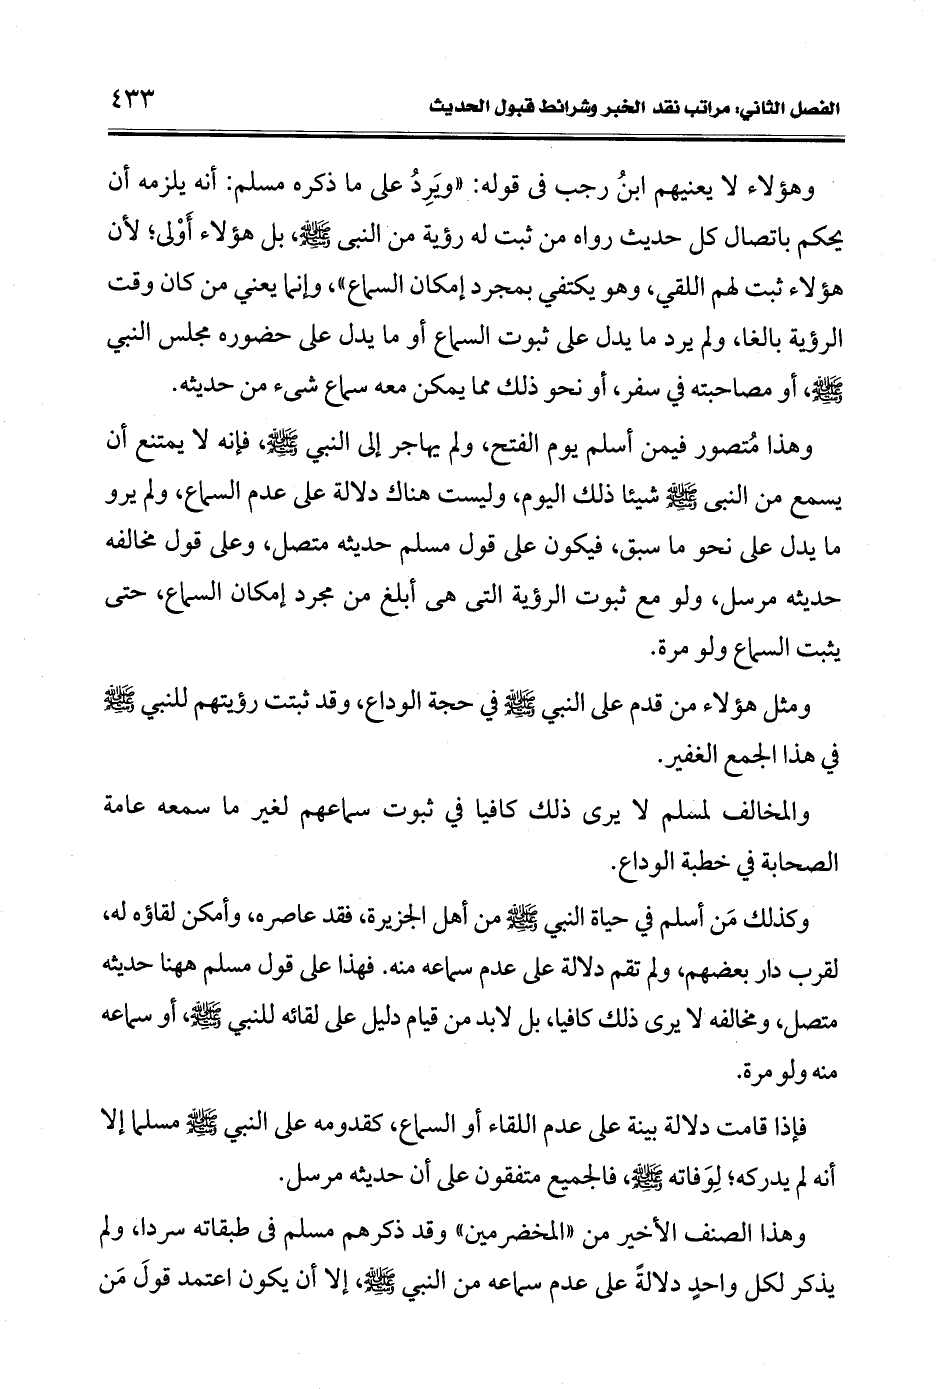 الفصل الثاني: مراتب نقد الخبر وشرائط قبول الحديث ٤٣٣
وهؤلاء لا يعنيهم ابنُ رجب فى قوله: «ويَرِدُ على ما ذكره مسلم: أنه يلزمه أن
يحكم باتصال كل حديث رواه من ثبت له رؤية من النبى ﷺ، بل هؤلاء أَوْلى؛ لأن
هؤلاء ثبت لهم اللقي، وهو يكتفي بمجرد إمكان السماع»، وإنما يعني من كان وقت
الرؤية بالغا، ولم يرد ما يدل على ثبوت السماع أو ما يدل على حضوره مجلس النبي
ﷺ، أو مصاحبته في سفر، أو نحو ذلك مما يمكن معه سماع شىء من حديثه.
وهذا مُتصور فيمن أسلم يوم الفتح، ولم يهاجر إلى النبي ﷺ، فإنه لا يمتنع أن
يسمع من النبى ﷺ شيئا ذلك اليوم، وليست هناك دلالة على عدم السماع، ولم يرو
ما يدل على نحو ما سبق، فيكون على قول مسلم حديثه متصل، وعلى قول مخالفه
حديثه مرسل، ولو مع ثبوت الرؤية التى هى أبلغ من مجرد إمكان السماع، حتى
يثبت السماع ولو مرة.
ومثل هؤلاء من قدم على النبي ﷺ في حجة الوداع، وقد ثبتت رؤيتهم للنبي ﷺ
في هذا الجمع الغفير.
والمخالف لمسلم لا يرى ذلك كافيا في ثبوت سماعهم لغير ما سمعه عامة
الصحابة في خطبة الوداع.
وكذلك مَن أسلم في حياة النبي ﷺ من أهل الجزيرة، فقد عاصره، وأمكن لقاؤه له،
لقرب دار بعضهم، ولم تقم دلالة على عدم سماعه منه. فهذا على قول مسلم ههنا حديثه
متصل، ومخالفه لا يرى ذلك كافيا، بل لابد من قيام دليل على لقائه للنبي ﷺ، أو سماعه
منه ولو مرة.
فإذا قامت دلالة بينة على عدم اللقاء أو السماع، كقدومه على النبي ﷺ مسلما إلا
أنه لم يدركه؛ لِوَفاته ﷺ، فالجميع متفقون على أن حديثه مرسل.
وهذا الصنف الأخير من «المخضرمين» وقد ذكرهم مسلم فى طبقاته سردا، ولم
يذكر لكل واحدٍ دلالةً على عدم سماعه من النبي ﷺ، إلا أن يكون اعتمد قولَ مَن